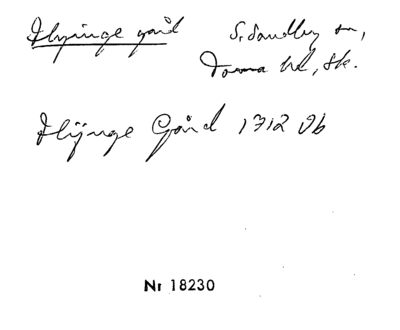 Flyinge gård S. Sandby sn,
Torna hd, Sk.
Flÿinge Gård 1712 Jb
Nr 18230